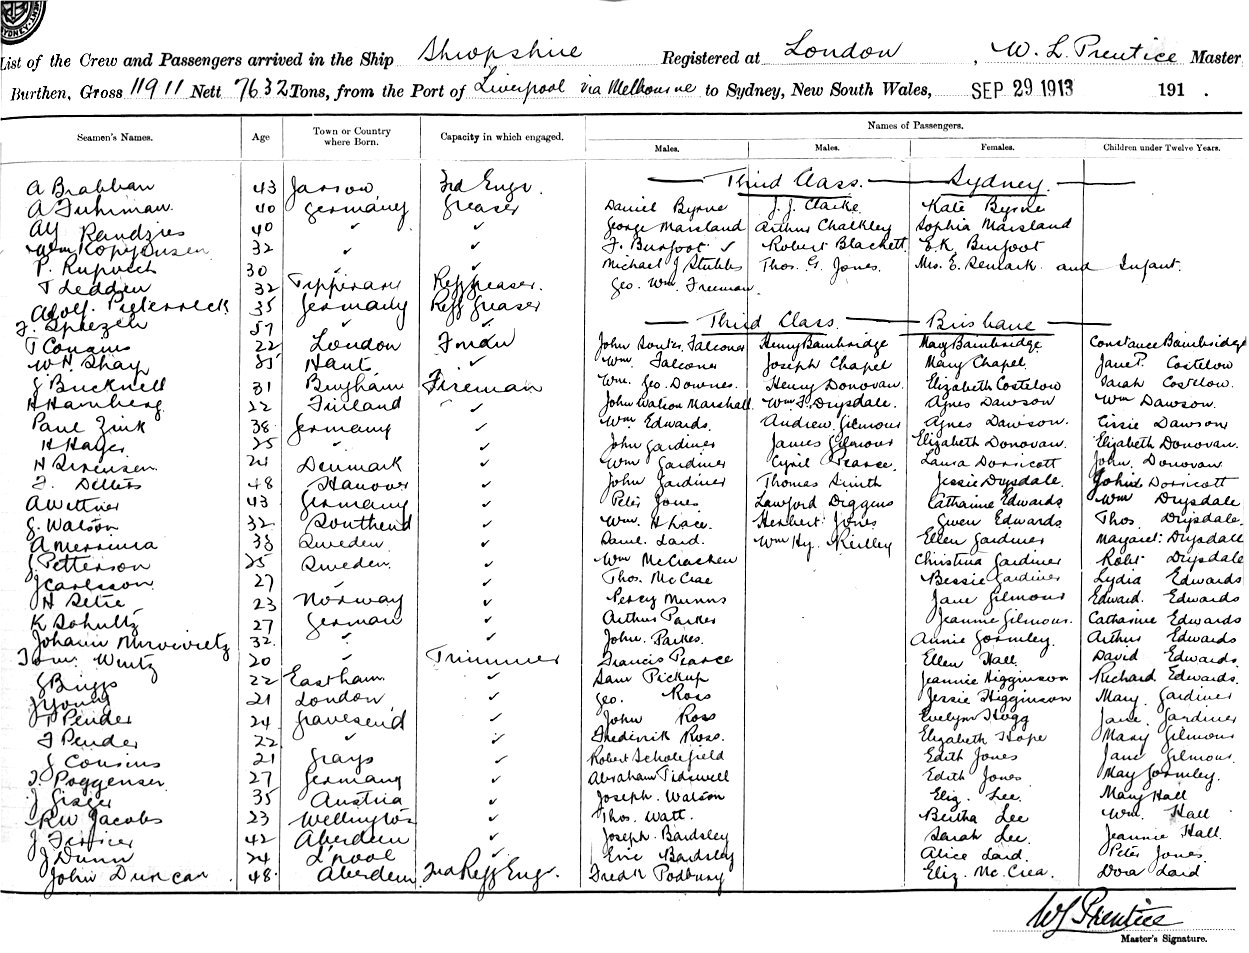 List of the Crew and Passengers arrived in the Ship Shropshire Registered at London, W. L. Prentice Master
Burthen, Gross 11911 Nett 7632 Tons, from the Port of Liverpool via Melbourne to Sydney, New South Wales, SEP 29 1913 191 .
Names of Passengers.
Seamen's Names. Age Town or Country where Born. Capacity in which engaged. Males. Males. Females. Children under Twelve Years.
Third Class. Sydney.
A Brabban 43 Jarrow 3rd Engr.
A Fuhrman 40 Germany Greaser Daniel Byrne J. J. Clarke Kate Byrne
40 ✓ ✓ George Marsland Arthur Chalkley Sophia Marsland
Wm 32 ✓ ✓ F. Burfoot ✓ Robert Blackett E.K. Burfoot
P. 30 ✓ ✓ Michael J Stubbs Thos. G. Jones. Mrs. E. Remark and Infant.
T Ledden 32 Tipperary Refgreaser. Geo. Wm. Freeman
Adolf 35 Germany Reff Greaser
57 ✓ ✓ Third Class. Brisbane
T Cousins 22 London John Souter Falconer Henry Bainbridge May Bainbridge Constance Bainbridge
W H Shay 35 Hant ✓ Wm. Falconer Joseph Chapel Mary Chapel. Jane P. Costelow
J Bucknell 31 Bingham Fireman Wm. Geo. Downes Henry Donovan. Elizabeth Costelow Sarah Costelow.
H Hamberg 22 Finland ✓ John Watson Marshall Wm F. Drysdale. Agnes Dawson Wm Dawson.
Paul Zink 38 Germany ✓ Wm Edwards. Andrew Gilmour Agnes Dawson. Cissie Dawson
H Hayes 25 ✓ ✓ John Gardiner James Gilmour Elizabeth Donovan. Elizabeth Donovan.
H Sorensen 21 Denmark ✓ Wm Gardiner Cyril Pearce. Laura Dorricott John. Donovan
F. Detlefs 48 Hanover ✓ John Gardiner Thomas Smith Jessie Drysdale. John Dorricott
A Wettner 43 Germany ✓ Peter Jones Lawford Diggins Catharine Edwards Wm Drysdale
G. Watson 32 Southend ✓ Wm. H Lace. Herbert Jones Gwen Edwards Thos. Drysdale.
A Merrima 38 Sweden ✓ Saml. Laird. Wm Hy. Reilley Ellen Gardiner Margaret Drysdale
J Petterson 25 Sweden. ✓ Wm McCracken Christina Gardiner Robt Drysdale
J Carlsson 27 ✓ ✓ Thos. McCrae Bessie Gardiner Lydia Edwards
H Setre 23 Norway ✓ Percy Munns Jane Gilmour Edward. Edwards
K Schultz 27 German ✓ Arthur Parkes Jeannie Gilmour. Catharine Edwards
Johann 32 ✓ ✓ John. Parkes. Annie Gormley. Arthur Edwards
Wm. Wentz 20 ✓ Trimmer Francis Pearce Ellen Hall. David Edwards
G Briggs 22 Eastham ✓ Sam Pickup Jeannie Higginson Richard Edwards.
J Young 21 London ✓ Geo. Ross Jessie Higginson Mary. Gardiner
T Pender 24 Gravesend ✓ John Ross Evelyn Hogg Jane. Gardiner
J Pender 22 ✓ ✓ Frederick Ross. Elizabeth Hope Mary Gilmour
J Cousins 21 Grays ✓ Robert Scholefield Edith Jones Jane Gilmour.
J. Poggenser 27 Germany ✓ Abraham Tidswell Edith Jones May Gormley.
J 35 Austria ✓ Joseph. Watson Eliz. Lee. Mary Hall
RW Jacobs 23 Wellington ✓ Thos. Watt. Bertha Lee Wm. Hall
J Ferrier 42 Aberdeen ✓ Joseph. Bardsley Sarah Lee. Jeannie Hall.
J Dunn 24 L'pool ✓ Eric Bardsley Alice Laird. Peter Jones.
John Duncan 48 Aberdeen 2nd Reff Engr. Fredk Podbury Eliz. McCrea. Dora Laird
W L Prentice
Master's Signature.